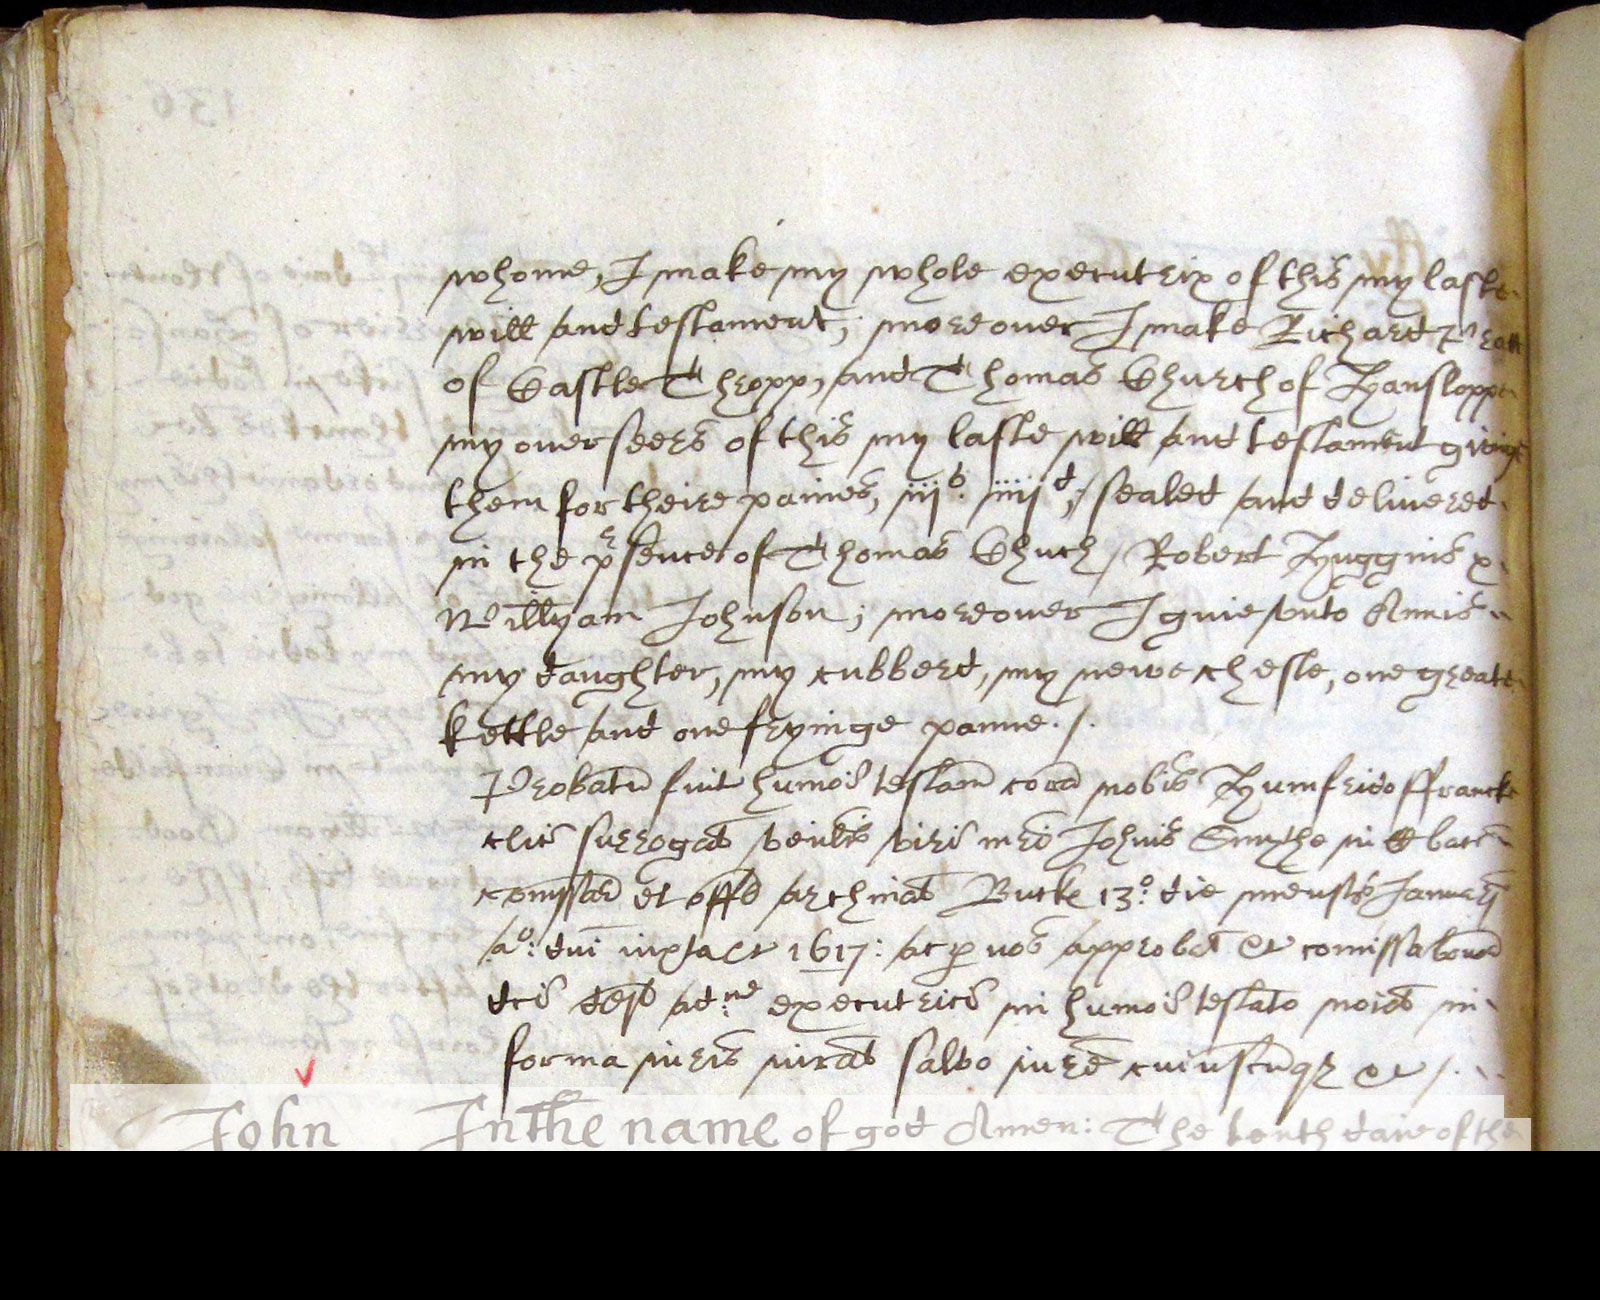 whome, I make my whole executrix of this my laste
will and testament; moreover I make Richard
of Castle Thropp, and Thomas Church of Hansloppe
my overseers of this my laste will and testament givinge
them for theire paines, iijs. iiijd; / sealed and delivered
in the prsence of Thomas Chuch / Robert Huggins x
Willyam Johnson; moreover I give vnto Annis
my daughter, my cubberd, my newe cheste, one greate
kettle and one fryinge panne. /.
Probatu fuit humoi testam cora nobis Humfrido ffrancke
clico surrogat venlis viri mri Johnis Smythe in ll bacc
comissar et offi archinat Bucke 13o: die mensis Januarij
Ao: dni iuxta &c 1617: ac p nos approbat &c comissa bonor
dci def ad:nd executrici in humoi testato noiat in
forma iuris iurat salvo iure cuiuscuqz &c /.
John In the name of god Amen: The tenth daie of the
136